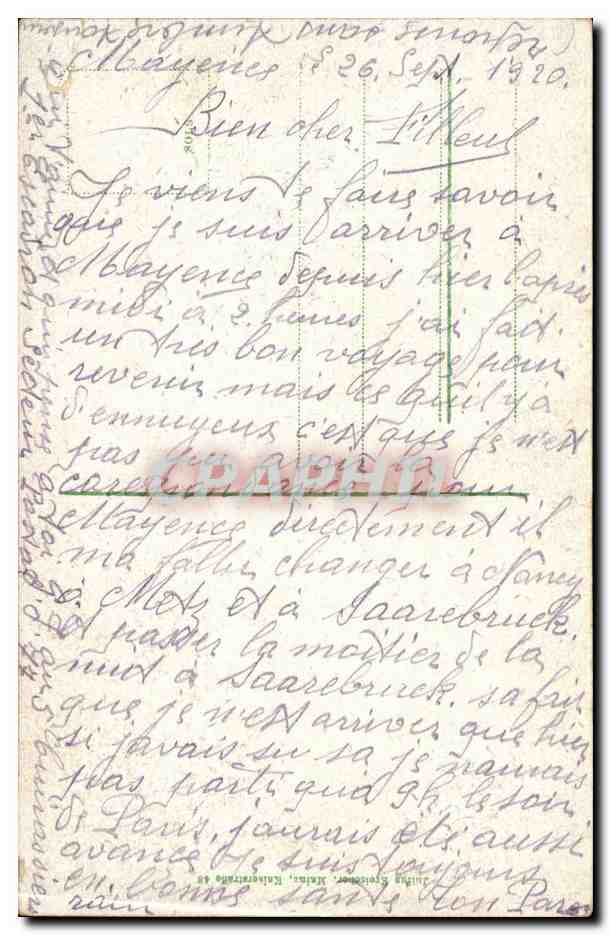 Mayence le 26 Sept 1920.
Bien cher Filleul
Je viens te faire savoir
que je suis arriver à
Mayence depuis hier l'après
midi à 2 heures j'ai fait
un très bon voyage pour
revenir mais ce qu'il y a
d'ennuyeux c'est que je n'est
pas pu avoir la
pour
Mayence directement il
ma fallu changer à Nancy
à Metz et à Saarebruck.
et passer la moitier de la
nuit à Saarebruck. sa fait
que je n'est arriver que hier
si javais su sa je naurais
pas parti qua 9h le soir
de Paris. jaurais été aussi
avancé Je suis toujours
en bonne santé ton Par
rain
Secteur Postal
Kreiscer, Mainz, Kaiserstraße 48
CPARHPI